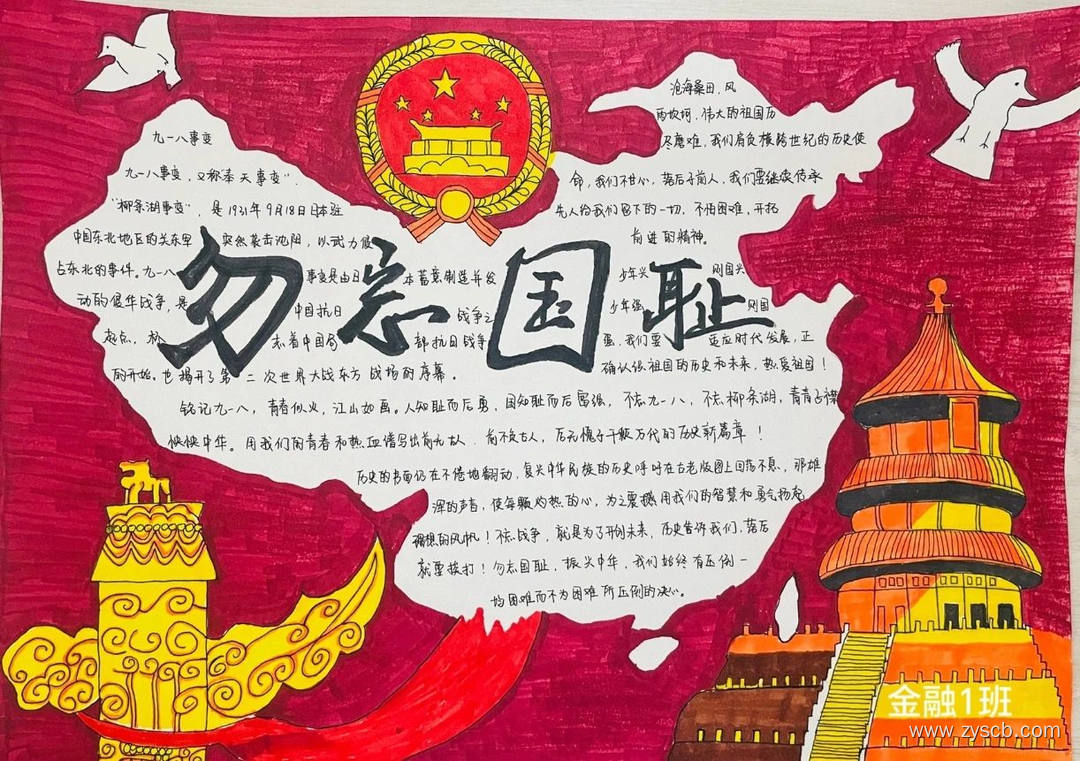 九一八事变
九一八事变,又称奉天事变".
"柳条湖事变",是1931年9月18日日本驻
中国东北地区的关东军突然袭击沈阳,以武力侵
占东北的事件。九一八事变是由日本蓄意制造并发
动的侵华战争,是中国抗日战争之
起点,标志着中国局部抗日战争
的开始,也揭开了第二次世界大战东方战场的序幕。
勿忘国耻
沧海桑田,风
雨坎坷,伟大的祖国历
尽磨难,我们肩负横跨世纪的历史使
命,我们不甘心,落后于前人,我们要继续传承
先人给我们留下的一切,不怕困难,开拓
前进的精神。
少年兴刚国兴
少年强刚国
强,我们要适应时代发展,正
确认供祖国的历史和未来,热爱祖国!
铭记九一八,青春似火,江山如画。人知耻而后勇,国知耻而后富强,不忘九一八,不忘柳条湖,青青子襟
怏怏中华。用我们的青春和热血谱写出前无古人.前不及古人,后无愧于千般万代的历史新篇章!
历史的书面仍在不倦地翻动,复兴中华民族的历史呼吁在古老版图上回荡不息,那雄
浑的声音,使每颗灼热的心,为之震撼用我们的智慧和勇气扬起
理想的风帆!不忘战争,就是为了开创未来,历史告诉我们,落后
就要挨打!勿忘国耻,振兴中华,我们始终有压倒一
切困难而不为困难所压倒的决心。
金融1班
www.zyscb.com